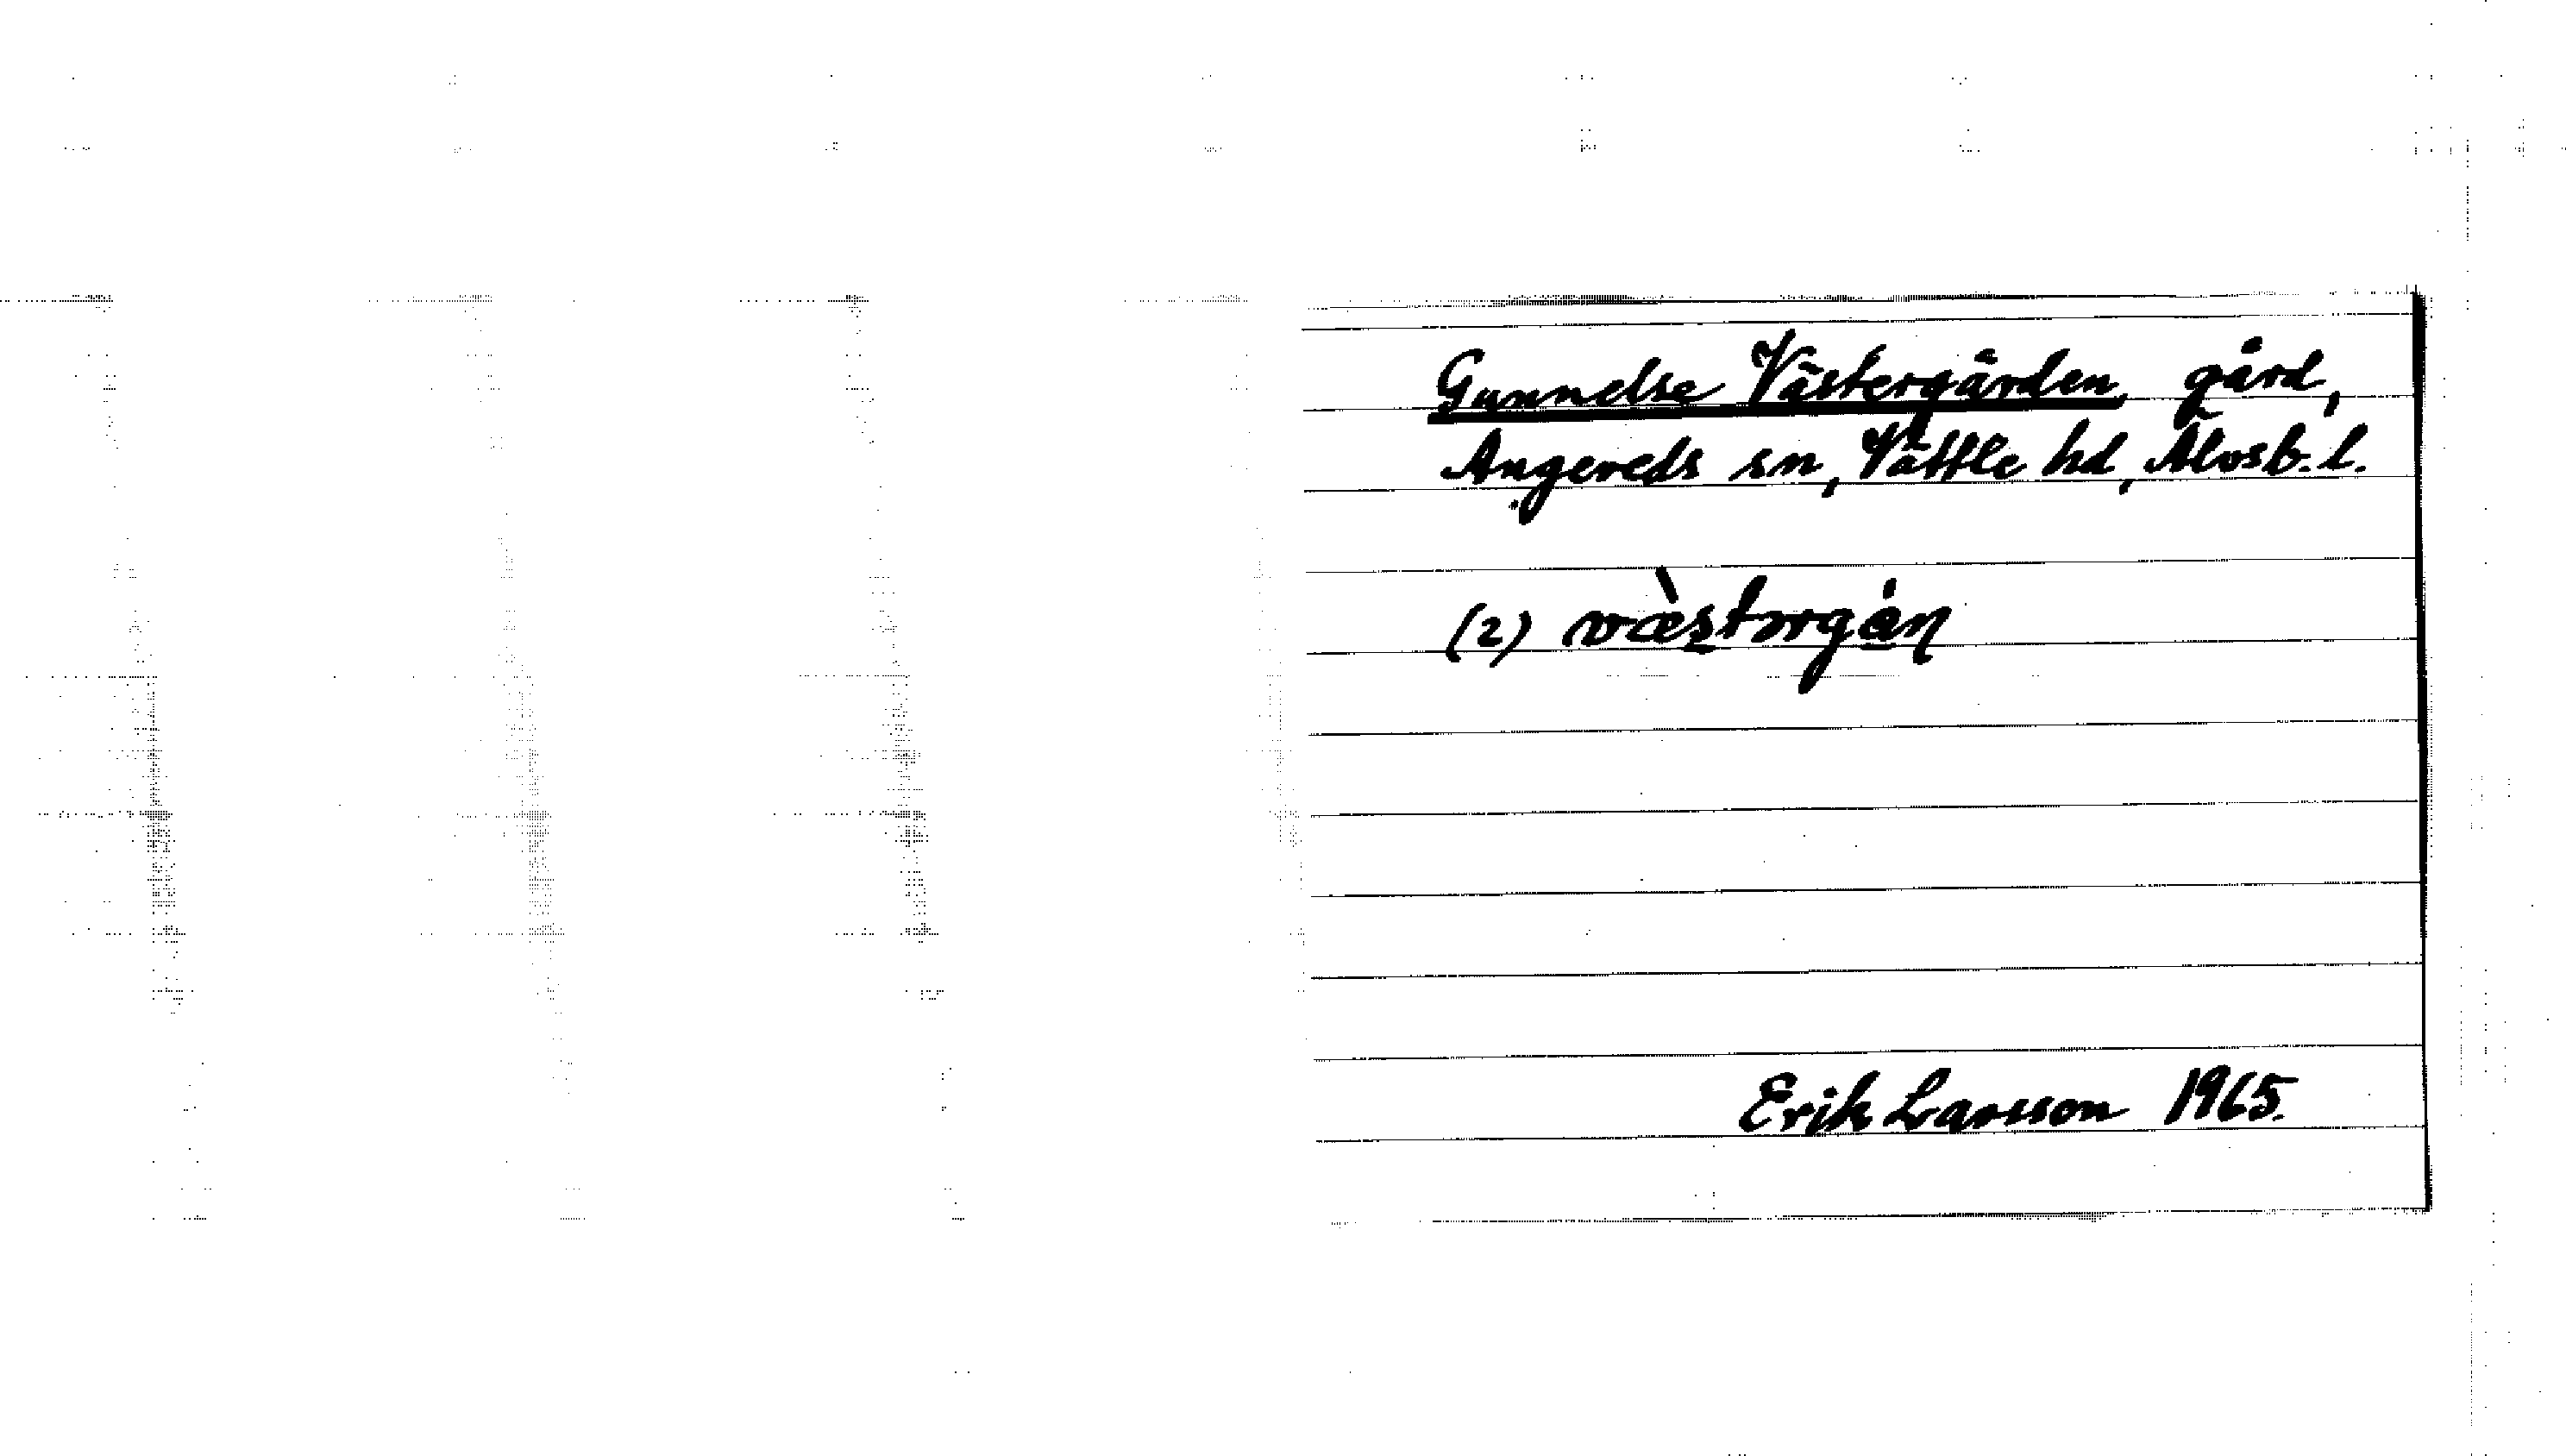 Gunnelse Västergården, gård,
Angereds sn, Vättle hd, Älvsb. l.
(2) væ̀stərgȧn
Erik Larsson 1965.